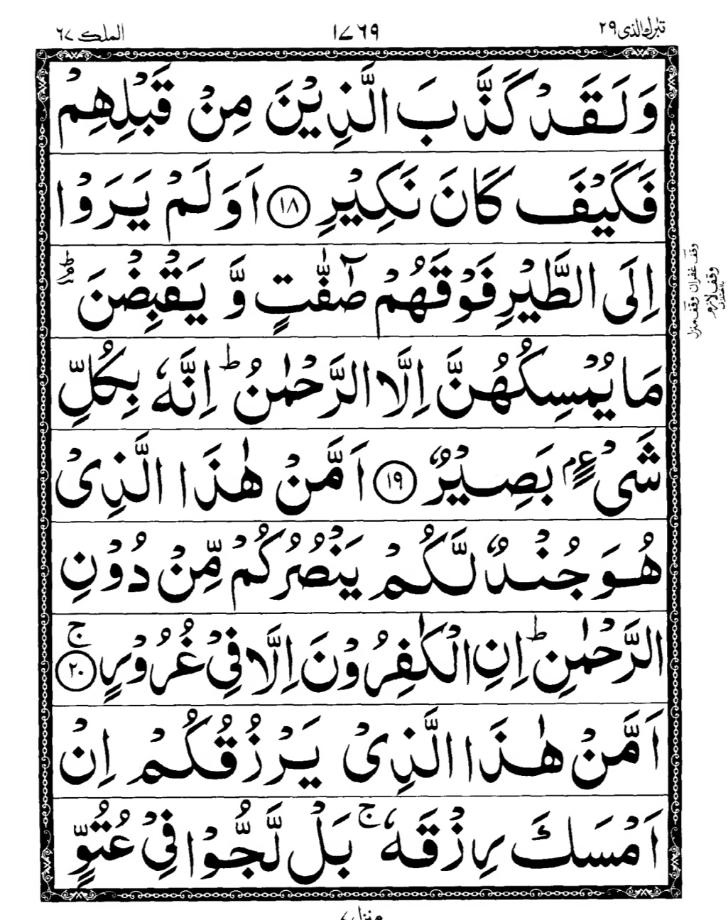 تبٰرك الذى ٢٩
١٧٦٩
الملك ٦٧
وَلَقَدْ كَذَّبَ الَّذِيْنَ مِنْ قَبْلِهِمْ
فَكَيْفَ كَانَ نَكِيْرِ ۝١٨ اَوَلَمْ يَرَوْا
اِلَى الطَّيْرِ فَوْقَهُمْ صٰٓفّٰتٍ وَّ يَقْبِضْنَ ؔۘ
مَا يُمْسِكُهُنَّ اِلَّا الرَّحْمٰنُ ؕ اِنَّهٗ بِكُلِّ
شَىْءٍۭ بَصِيْرٌ ۝١٩ اَمَّنْ هٰذَا الَّذِىْ
هُوَ جُنْدٌ لَّكُمْ يَنْصُرُكُمْ مِّنْ دُوْنِ
الرَّحْمٰنِ ؕ اِنِ الْكٰفِرُوْنَ اِلَّا فِىْ غُرُوْرٍ ۝٢٠ ۚ
اَمَّنْ هٰذَا الَّذِىْ يَرْزُقُكُمْ اِنْ
اَمْسَكَ رِزْقَهٗ ۚ بَلْ لَّجُّوْا فِىْ عُتُوٍّ
وقف غفران
وقف لازم
وقف منزل
منزل ٧